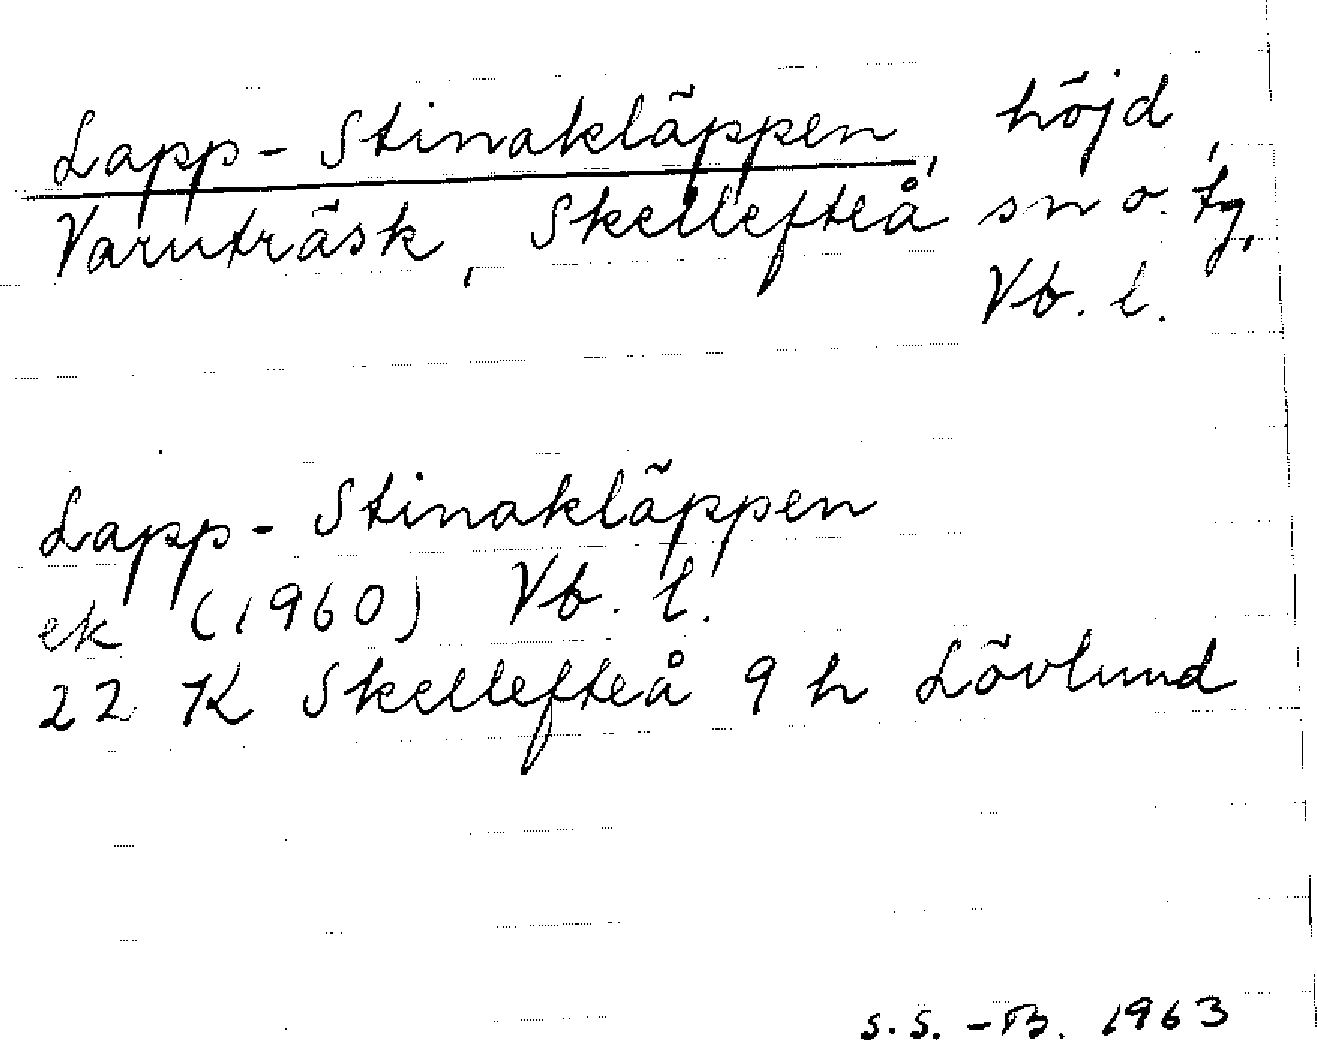 Lapp-Stinakläppen, höjd,
Varuträsk, Skellefteå sn o. tg,
Vb. l.
Lapp-Stinakläppen
ek (1960) Vb. l.
22 K Skellefteå 9 h Lövlund
S.S.-B. 1963